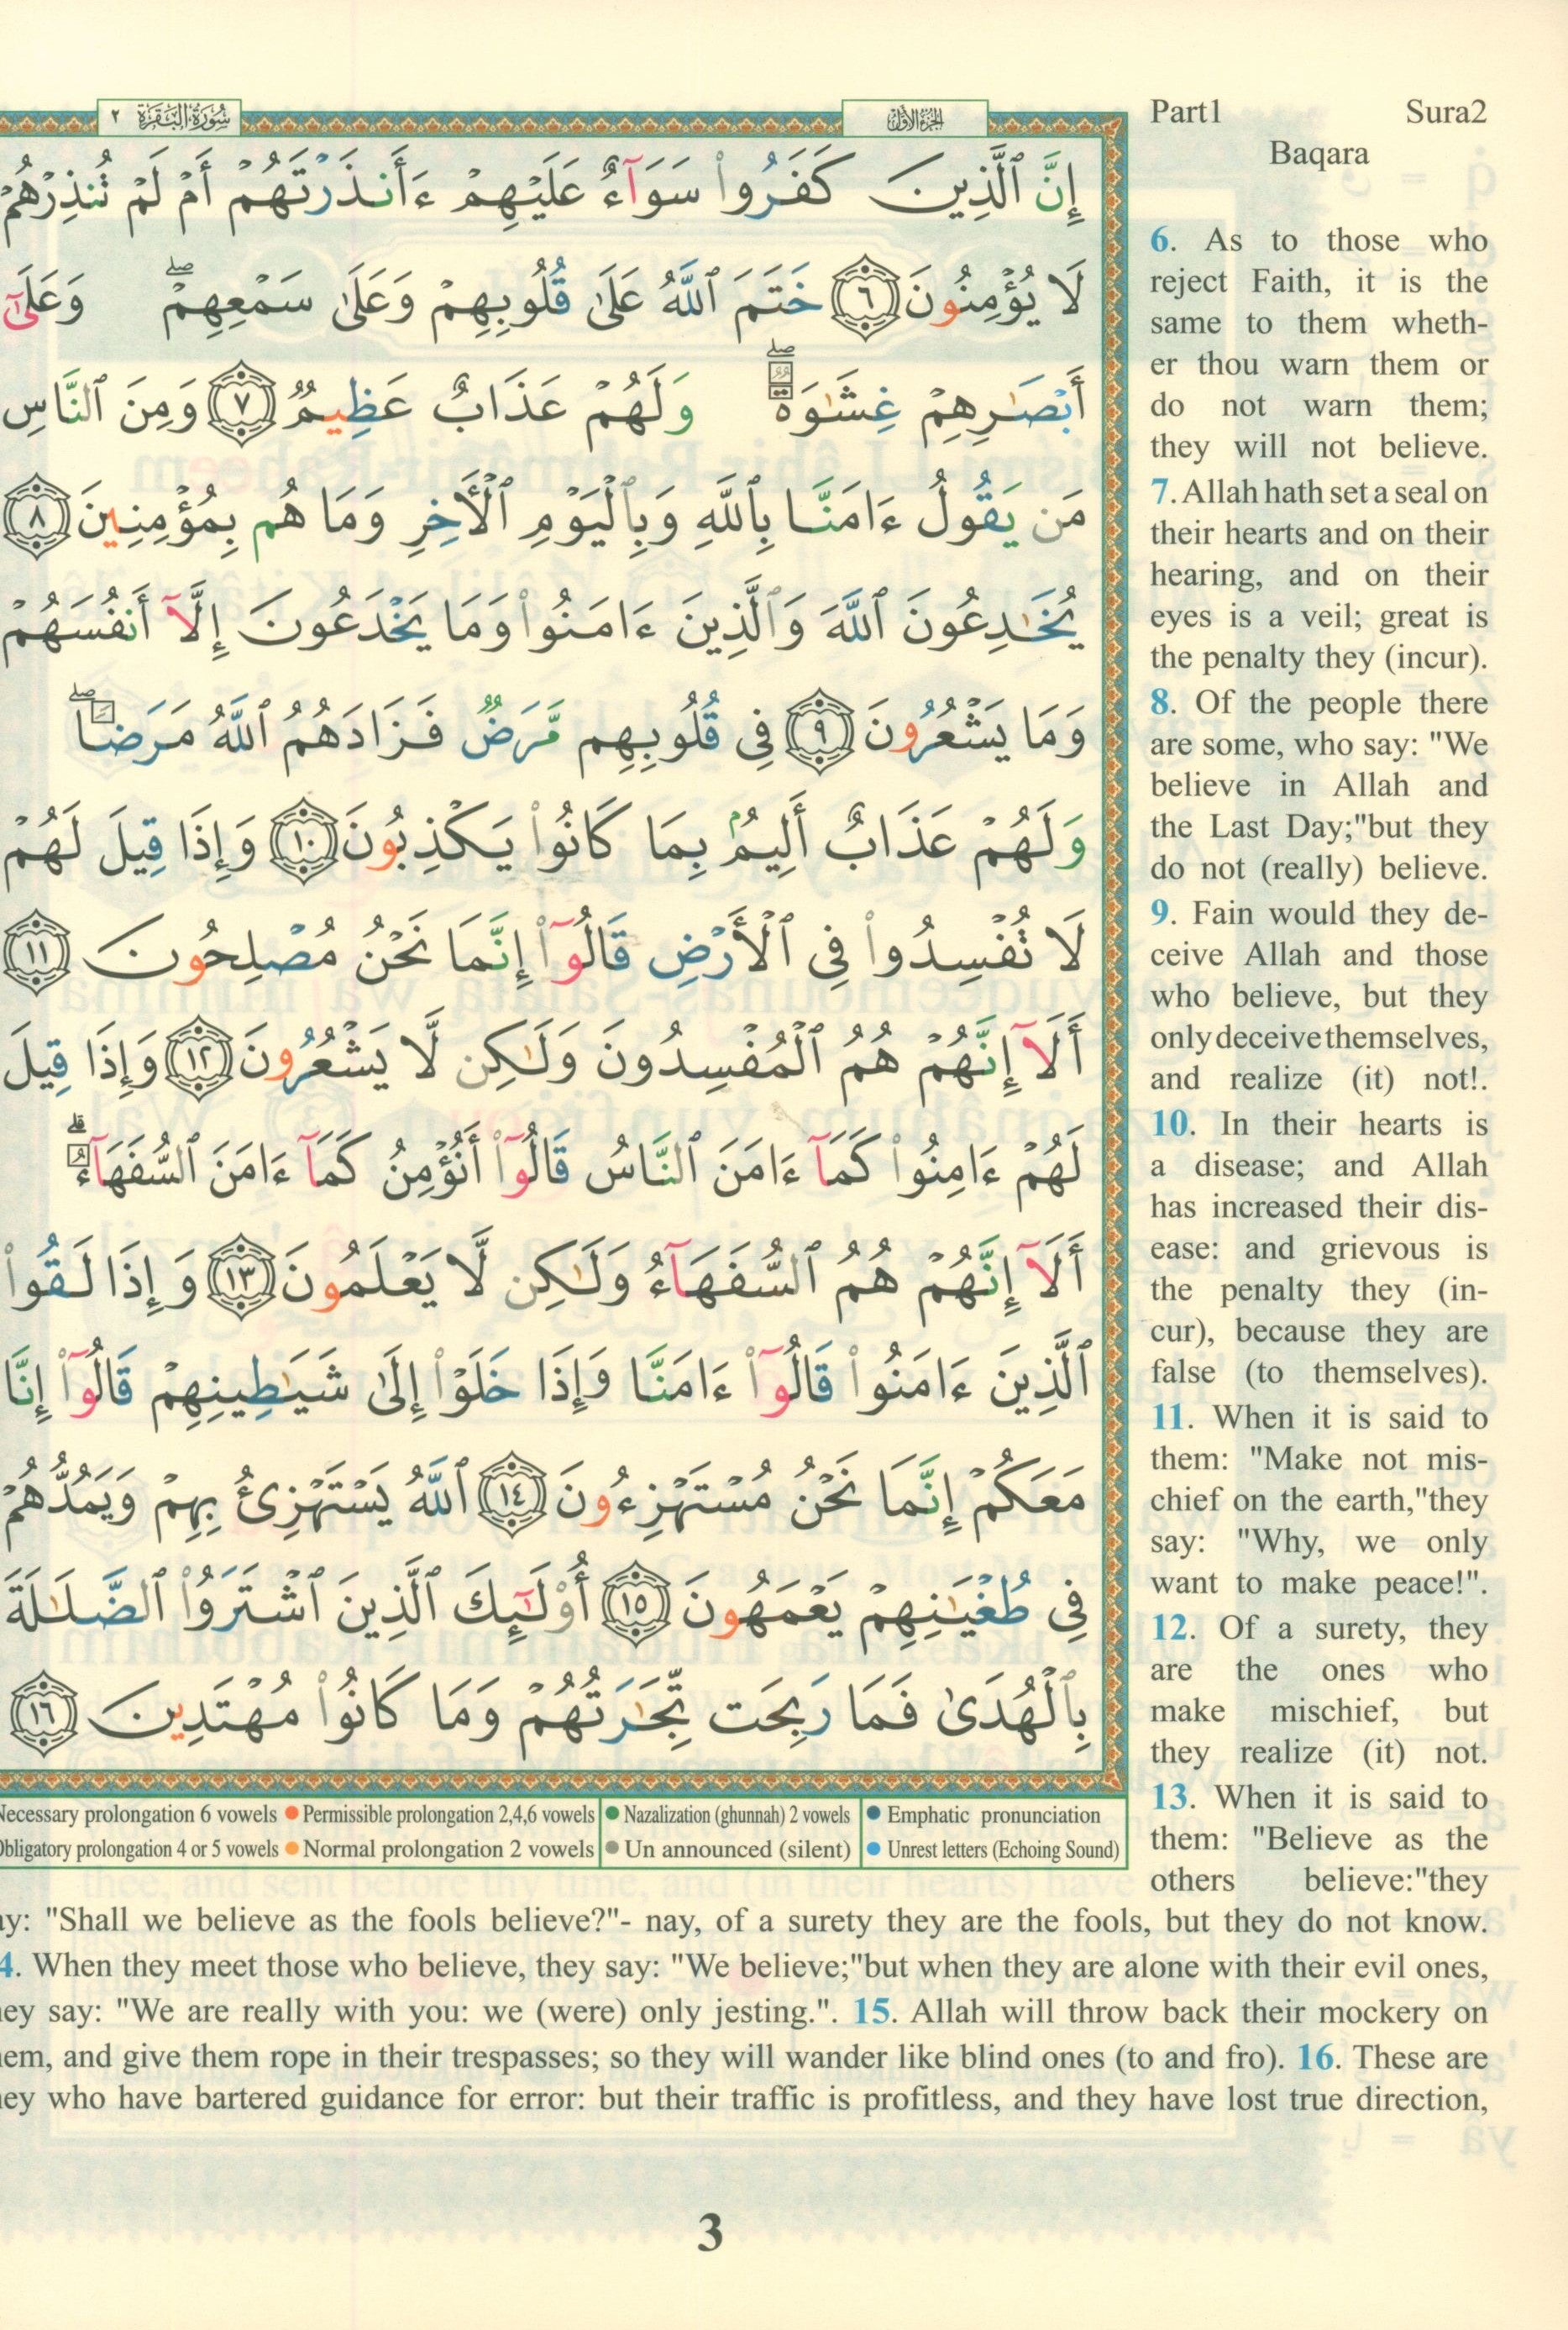 سُورَةُ البَقَرَة ٢
الجُزْءُ الأَوَّل
Part1 Sura2
Baqara
إِنَّ ٱلَّذِينَ كَفَرُوا۟ سَوَآءٌ عَلَيْهِمْ ءَأَنذَرْتَهُمْ أَمْ لَمْ تُنذِرْهُمْ
لَا يُؤْمِنُونَ ٦ خَتَمَ ٱللَّهُ عَلَىٰ قُلُوبِهِمْ وَعَلَىٰ سَمْعِهِمْ ۖ وَعَلَىٰٓ
أَبْصَـٰرِهِمْ غِشَـٰوَةٌ ۖ وَلَهُمْ عَذَابٌ عَظِيمٌ ٧ وَمِنَ ٱلنَّاسِ
مَن يَقُولُ ءَامَنَّا بِٱللَّهِ وَبِٱلْيَوْمِ ٱلْـَٔاخِرِ وَمَا هُم بِمُؤْمِنِينَ ٨
يُخَـٰدِعُونَ ٱللَّهَ وَٱلَّذِينَ ءَامَنُوا۟ وَمَا يَخْدَعُونَ إِلَّآ أَنفُسَهُمْ
وَمَا يَشْعُرُونَ ٩ فِى قُلُوبِهِم مَّرَضٌ فَزَادَهُمُ ٱللَّهُ مَرَضًا ۖ
وَلَهُمْ عَذَابٌ أَلِيمٌۢ بِمَا كَانُوا۟ يَكْذِبُونَ ١٠ وَإِذَا قِيلَ لَهُمْ
لَا تُفْسِدُوا۟ فِى ٱلْأَرْضِ قَالُوٓا۟ إِنَّمَا نَحْنُ مُصْلِحُونَ ١١
أَلَآ إِنَّهُمْ هُمُ ٱلْمُفْسِدُونَ وَلَـٰكِن لَّا يَشْعُرُونَ ١٢ وَإِذَا قِيلَ
لَهُمْ ءَامِنُوا۟ كَمَآ ءَامَنَ ٱلنَّاسُ قَالُوٓا۟ أَنُؤْمِنُ كَمَآ ءَامَنَ ٱلسُّفَهَآءُ ۗ
أَلَآ إِنَّهُمْ هُمُ ٱلسُّفَهَآءُ وَلَـٰكِن لَّا يَعْلَمُونَ ١٣ وَإِذَا لَقُوا۟
ٱلَّذِينَ ءَامَنُوا۟ قَالُوٓا۟ ءَامَنَّا وَإِذَا خَلَوْا۟ إِلَىٰ شَيَـٰطِينِهِمْ قَالُوٓا۟ إِنَّا
مَعَكُمْ إِنَّمَا نَحْنُ مُسْتَهْزِءُونَ ١٤ ٱللَّهُ يَسْتَهْزِئُ بِهِمْ وَيَمُدُّهُمْ
فِى طُغْيَـٰنِهِمْ يَعْمَهُونَ ١٥ أُو۟لَـٰٓئِكَ ٱلَّذِينَ ٱشْتَرَوُا۟ ٱلضَّلَـٰلَةَ
بِٱلْهُدَىٰ فَمَا رَبِحَت تِّجَـٰرَتُهُمْ وَمَا كَانُوا۟ مُهْتَدِينَ ١٦
Necessary prolongation 6 vowels ● Permissible prolongation 2,4,6 vowels ● Nazalization (ghunnah) 2 vowels ● Emphatic pronunciation
Obligatory prolongation 4 or 5 vowels ● Normal prolongation 2 vowels ● Un announced (silent) ● Unrest letters (Echoing Sound)
6. As to those who
reject Faith, it is the
same to them wheth-
er thou warn them or
do not warn them;
they will not believe.
7. Allah hath set a seal on
their hearts and on their
hearing, and on their
eyes is a veil; great is
the penalty they (incur).
8. Of the people there
are some, who say: "We
believe in Allah and
the Last Day;"but they
do not (really) believe.
9. Fain would they de-
ceive Allah and those
who believe, but they
only deceive themselves,
and realize (it) not!.
10. In their hearts is
a disease; and Allah
has increased their dis-
ease: and grievous is
the penalty they (in-
cur), because they are
false (to themselves).
11. When it is said to
them: "Make not mis-
chief on the earth,"they
say: "Why, we only
want to make peace!".
12. Of a surety, they
are the ones who
make mischief, but
they realize (it) not.
13. When it is said to
them: "Believe as the
others believe:"they
ay: "Shall we believe as the fools believe?"- nay, of a surety they are the fools, but they do not know.
4. When they meet those who believe, they say: "We believe;"but when they are alone with their evil ones,
hey say: "We are really with you: we (were) only jesting.". 15. Allah will throw back their mockery on
hem, and give them rope in their trespasses; so they will wander like blind ones (to and fro). 16. These are
hey who have bartered guidance for error: but their traffic is profitless, and they have lost true direction,
3